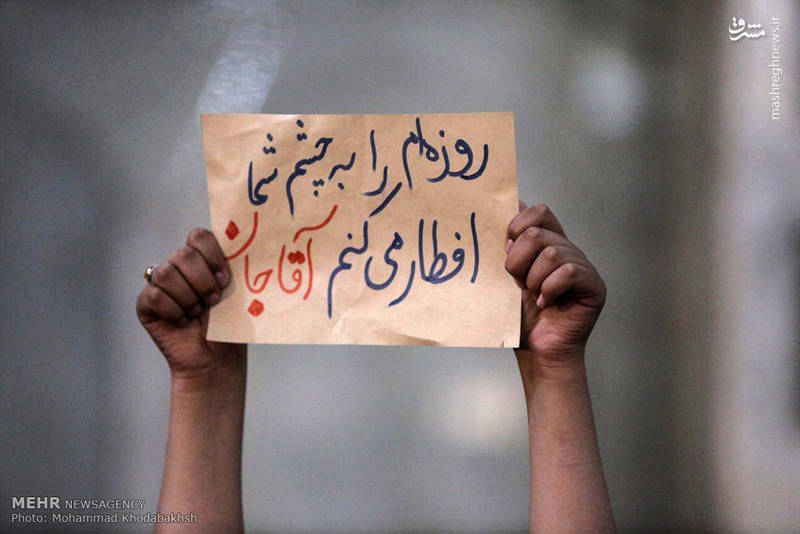 مشرق
mashreghnews.ir
روزه‌ام را به چشم شما
افطار می‌کنم آقا جان
MEHR NEWSAGENCY
Photo: Mohammad Khodabakhsh